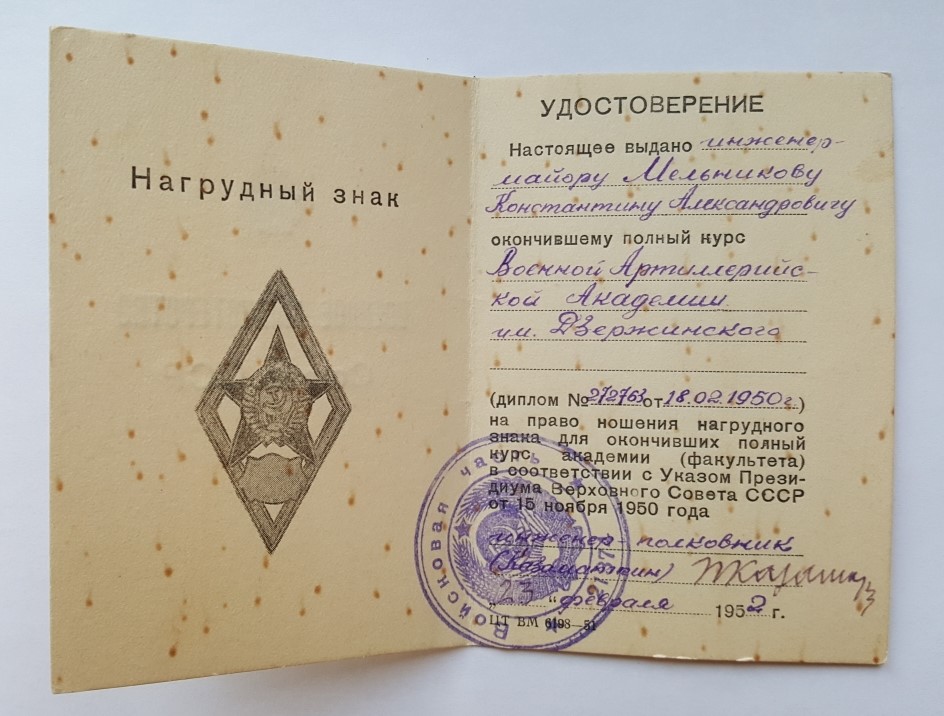 Нагрудный знак
УДОСТОВЕРЕНИЕ
Настоящее выдано инженер-
майору Мельникову
Константину Александровичу
окончившему полный курс
Военной Артиллерийс-
кой Академии
им. Дзержинского
(диплом № 272763 от 18.02.1950 г.)
на право ношения нагрудного
знака для окончивших полный
курс академии (факультета)
в соответствии с Указом Прези-
диума Верховного Совета СССР
от 15 ноября 1950 года
инженер-полковник
„23“ февраля 1952 г.
ЦТ ВМ 6198—51
Войсковая часть